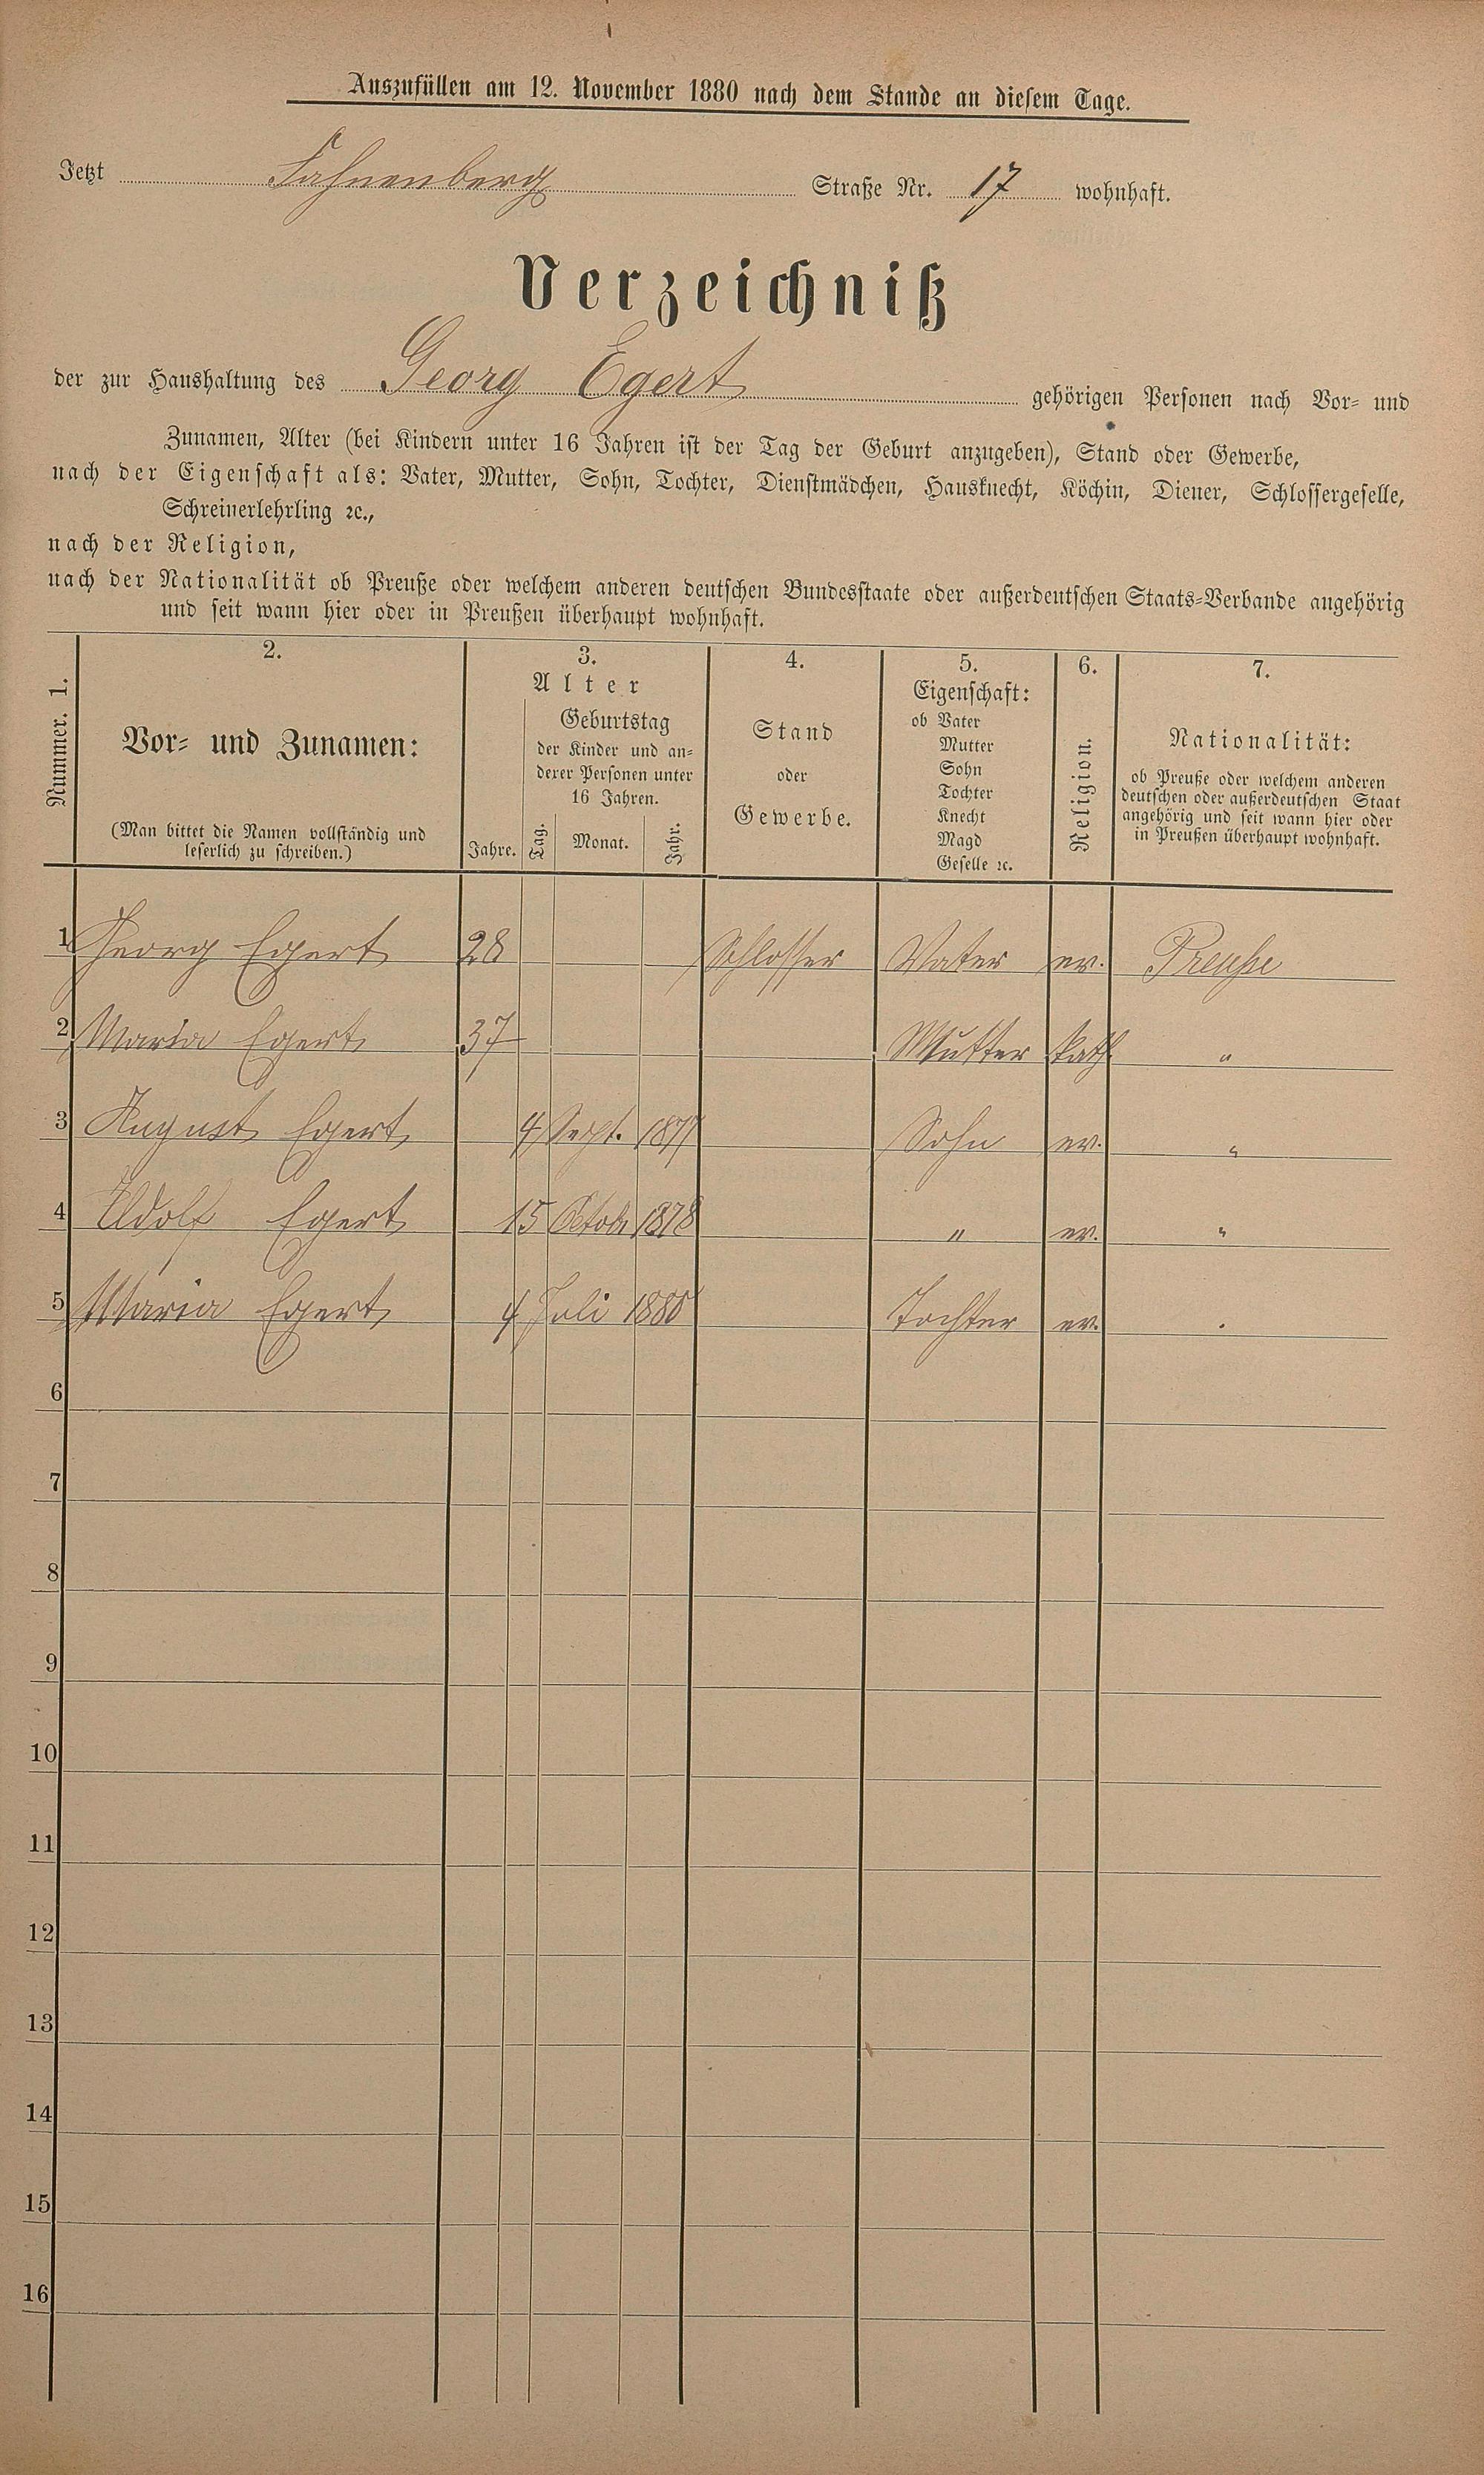 Auszufüllen am 12. November 1880 nach dem Stande an diesem Tage.
Jetzt Fahnenberg Straße Nr. 17 wohnhaft.
Verzeichniß
der zur Haushaltung des Georg Egert gehörigen Personen nach Vor- und
Zunamen, Alter (bei Kindern unter 16 Jahren ist der Tag der Geburt anzugeben), Stand oder Gewerbe,
nach der Eigenschaft als: Vater, Mutter, Sohn, Tochter, Dienstmädchen, Hausknecht, Köchin, Diener, Schlossergeselle,
Schreinerlehrling ꝛc.,
nach der Religion,
nach der Nationalität ob Preuße oder welchem anderen deutschen Bundesstaate oder außerdeutschen Staats-Verbande angehörig
und seit wann hier oder in Preußen überhaupt wohnhaft.
Nummer. 1.
2.
Vor- und Zunamen:
(Man bittet die Namen vollständig und
leserlich zu schreiben.)
3.
Alter
Geburtstag
der Kinder und an-
derer Personen unter
16 Jahren.
Jahre. Tag. Monat. Jahr.
4.
Stand
oder
Gewerbe.
5.
Eigenschaft:
ob Vater
Mutter
Sohn
Tochter
Knecht
Magd
Geselle ꝛc.
6.
Religion.
7.
Nationalität:
ob Preuße oder welchem anderen
deutschen oder außerdeutschen Staat
angehörig und seit wann hier oder
in Preußen überhaupt wohnhaft.
1 Georg Egert 28 Schlosser Vater ev. Preuße
2 Maria Egert 37 Mutter kath. "
3 August Egert 4 Sept. 1877 Sohn ev. "
4 Adolf Egert 15 Octob. 1878 " ev. "
5 Maria Egert 4 Juli 1880 Tochter ev. "
6
7
8
9
10
11
12
13
14
15
16